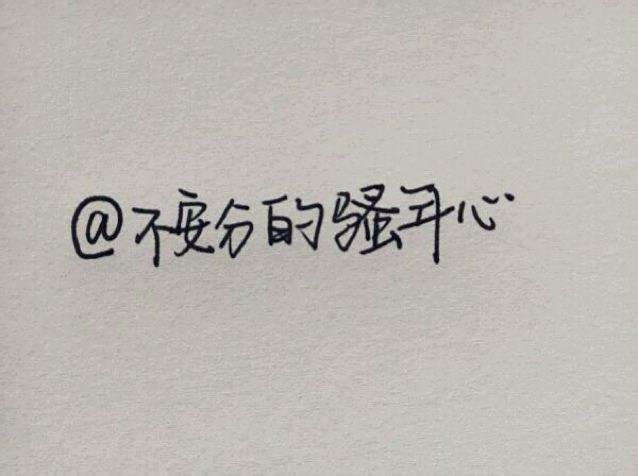 @不安分的骚年心